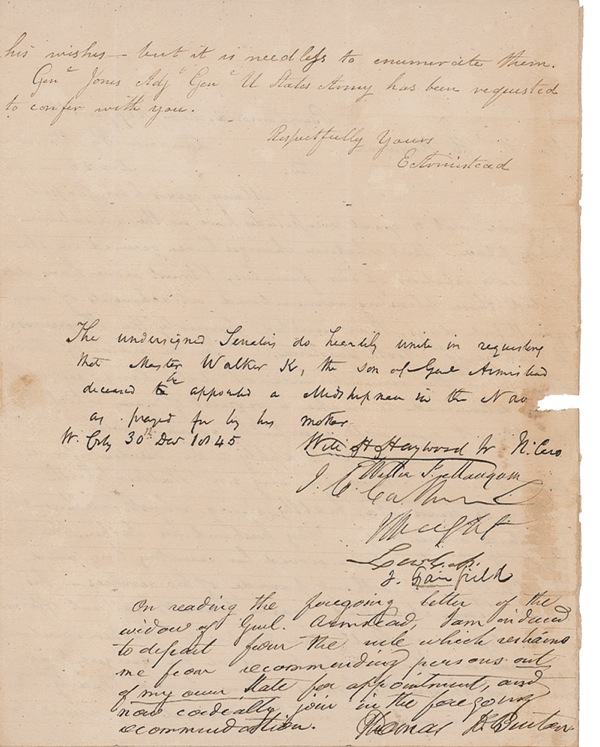 his wishes – but it is needless to enumerate them.
Genl Jones Adjt Genl U States Army has been requested
to confer with you.
Respectfully Yours
E Armistead
The undersigned Senators do heartily unite in requesting
that Master Walker K, the son of Genl Armistead
deceased be appointed a Midshipman in the Nav
as prayed for by his mother
W. City 30th Decr 1845
Will H Haywood Jr N. Caro
Willie P. Mangum
J. C. Calhoun
Lewis
J. Fairfield
On reading the foregoing letter of the
widow of Genl Armistead, I am induced
to depart from the rule which restrains
me from recommending persons out
of my own State for appointment, and
now cordially join in the foregoing
recommendation. Thomas H. Benton